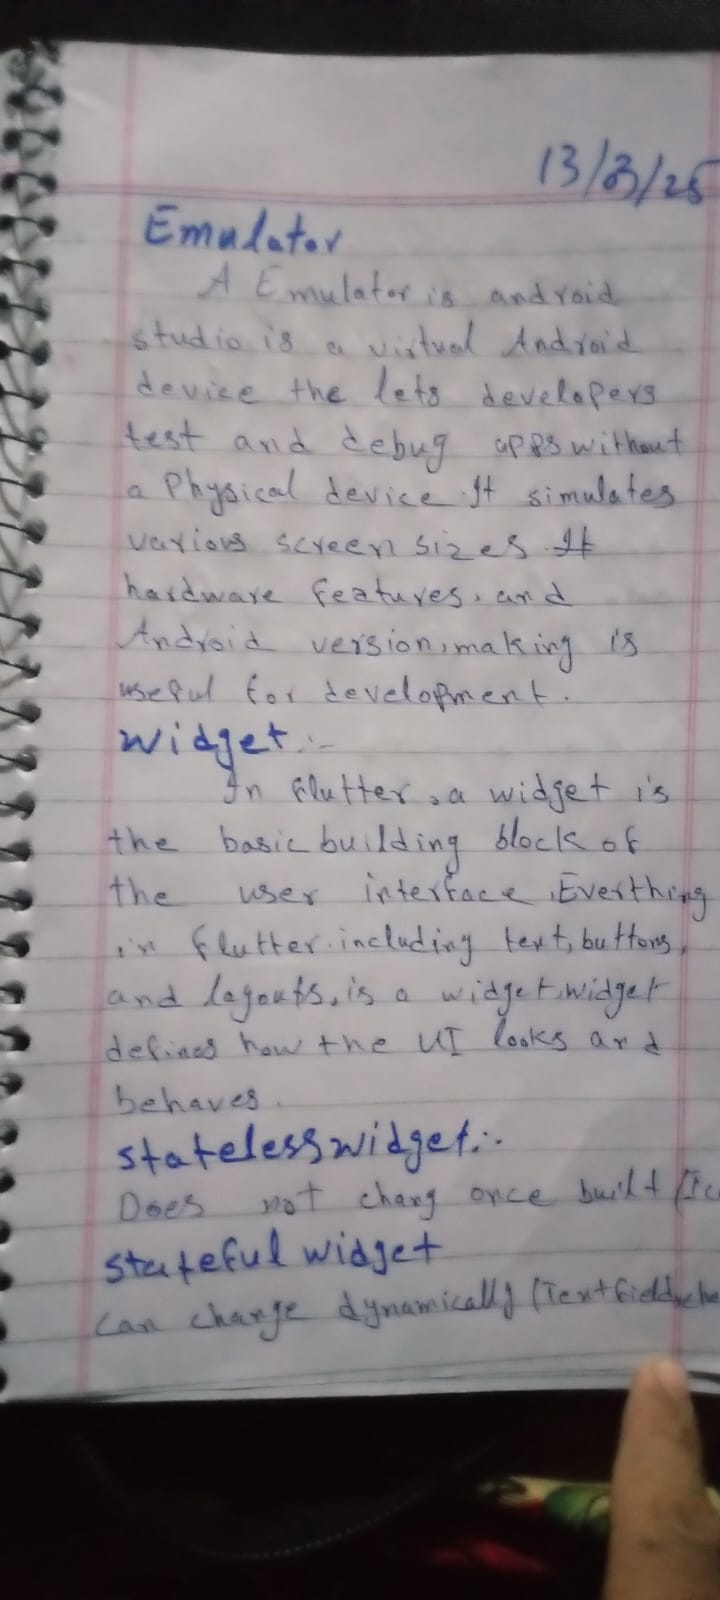 13/3/25
Emulator
A Emulator is android
studio is a virtual Android
device the lets developers
test and debug apps without
a Physical device It simulates
various screen sizes It
hardware features, and
Android version, making is
useful for development.
widget :-
In flutter, a widget is
the basic building block of
the user interface, Everthing
in flutter. including text, buttons,
and layouts, is a widget, widget
defines how the UI looks and
behaves.
stateless widget :-
Does not chang once built
stateful widget
can change dynamically (Textfield,